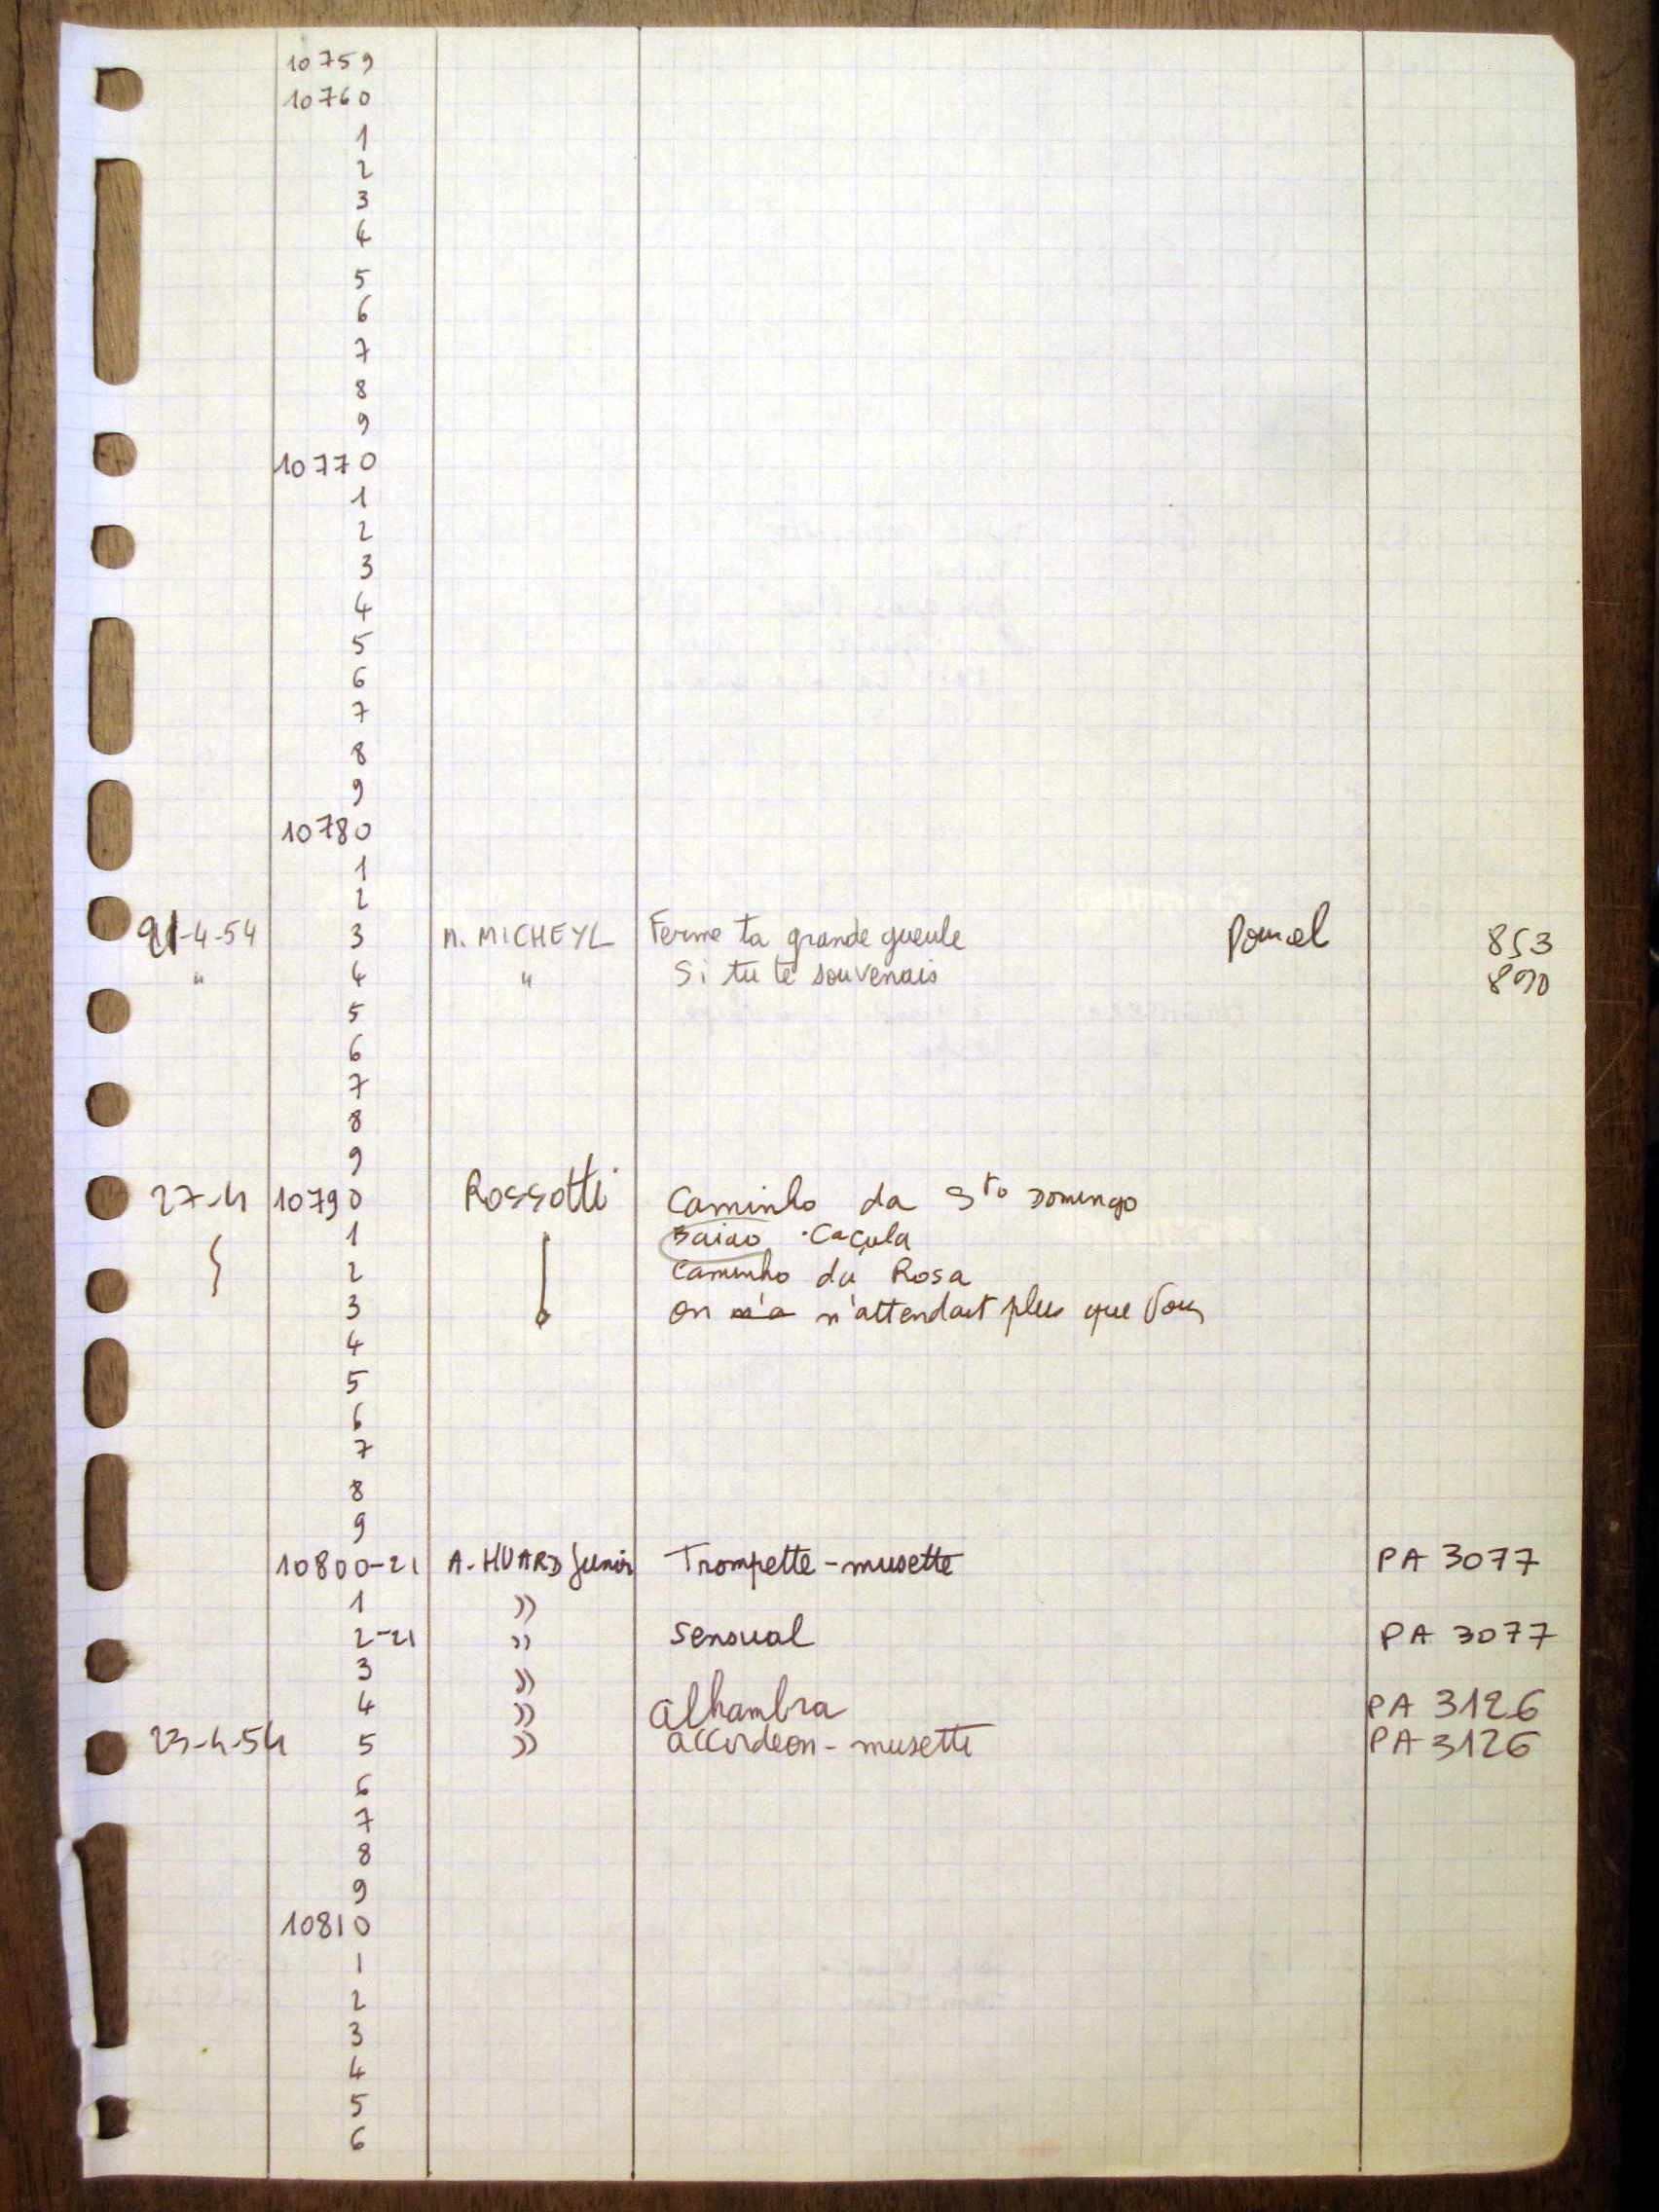 10759
10760
1
2
3
4
5
6
7
8
9
10770
1
2
3
4
5
6
7
8
9
10780
1
2
21-4-54 3 M. MICHEYL Ferme ta grande gueule Pourcel 853
" 4 " Si tu te souvenais 890
5
6
7
8
9
27-4 10790 Rossotti Caminho da Sto Domingo
1 Baiao Caçula
2 Caminho da Rosa
3 on n'a n'attendait plus que vous
4
5
6
7
8
9
10800-21 A. HUARD Junior Trompette-musette PA 3077
1 »
2-21 » Sensual PA 3077
3 »
4 » Alhambra PA 3126
23-4-54 5 » accordeon-musette PA 3126
6
7
8
9
10810
1
2
3
4
5
6